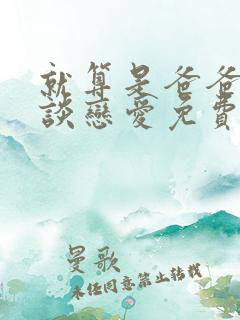 就算是爸爸
談戀愛免費
曼歌
未任同意禁止转载